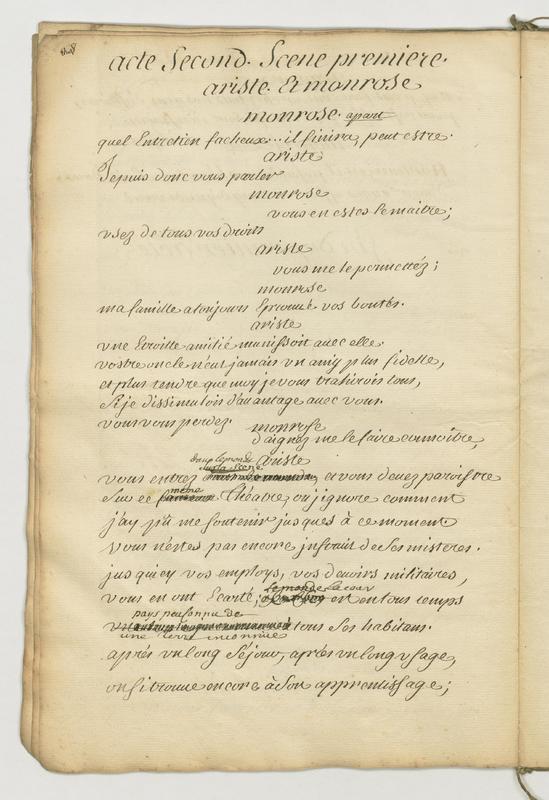 acte Second. Scene premiere.
ariste. Et monrose
monrose. apart
quel Entretien facheux... il finira, peut estre.
ariste
Je puis donc vous parler
monrose
vous en estes le maitre;
vsez de tous vos droits
ariste
vous me le permettéz;
monrose
ma famille a toujours Eprouué vos bontés.
ariste
vne Etroitte amitié munissoit auec elle.
vostre oncle n'eut jamais vn amy plus fidelle,
et plus tendre que moy je vous trahirois tous,
Si je dissimulois d'auantage auec vous.
vous vous perdez.
monrose
daignez me le faire connoître,
ariste
dans le monde
sur la Scene
vous entrez et vous deuez paroistre
même
Sur ce théatre, où j'ignore comment
j'ay pû me soutenir jusques à ce moment
vous n'êtes pas encore instruit de Ses misteres.
jusqu'icy vos employs, vos deuoirs militaires,
le monde la cour
vous en ont Ecarté; est en tous temps
pays peu connu de
tous Ses habitans.
une terre inconnue
aprés vn long Séjour, aprés vn long vsage,
on s'i trouue encore à Son apprentissage;